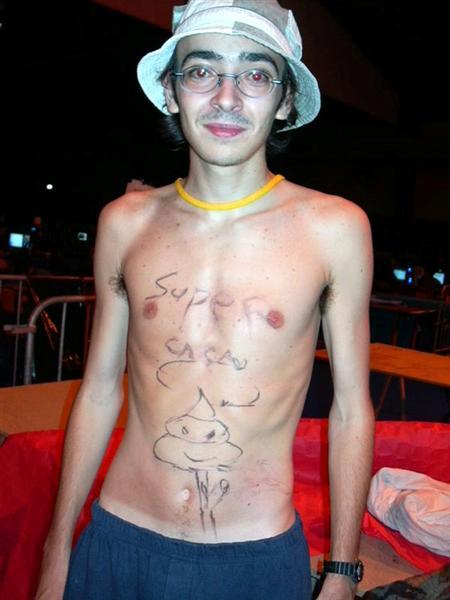 Super
CACA